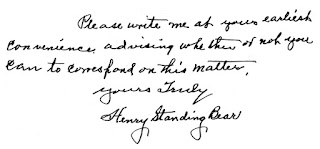 Please write me at your earliest
convenience, advising whether or not you
care to correspond on this matter.
yours Truly
Henry Standing Bear